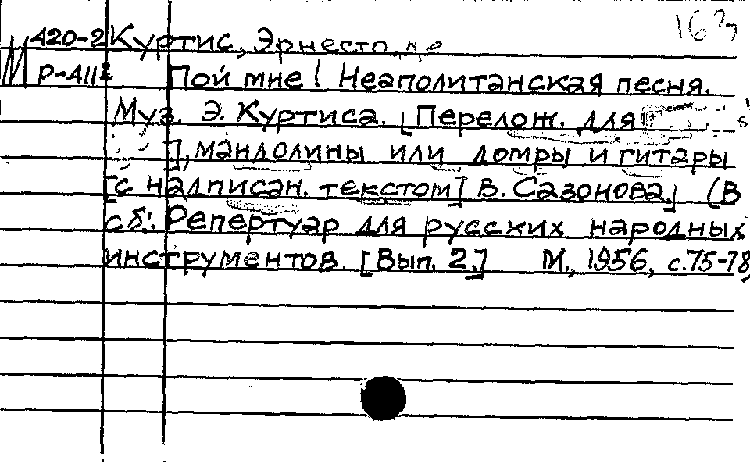 420-2 Куртис, Эрнесто де
М Р-411
Пой мне! Неаполитанская песня.
Муз. Э. Куртиса. [Перелож. для
], мандолины или домры и гитары
[с надписан. текстом] В. Сазонова.] (В
сб: Репертуар для русских народных
инструментов. [Вып. 2.] М., 1956, с. 75-78